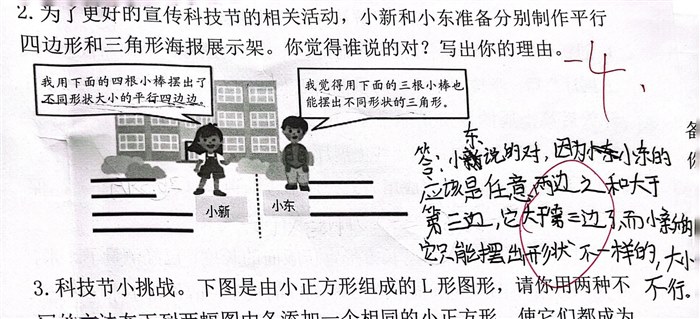 2. 为了更好的宣传科技节的相关活动，小新和小东准备分别制作平行
四边形和三角形海报展示架。你觉得谁说的对？写出你的理由。
-4
我用下面的四根小棒摆出了
不同形状大小的平行四边边。
我觉得用下面的三根小棒也
能摆出不同形状的三角形。
小新
小东
东
答：小说的对，因为小东的
应该是任意两边之和大于
第三边，它大于第三边了，而小新的
它只能摆出形状不一样的，大小
不行。
3. 科技节小挑战。下图是由小正方形组成的 L 形图形，请你用两种不
同的方法在下列两幅图中各添加一个相同的小正方形，使它们都成为